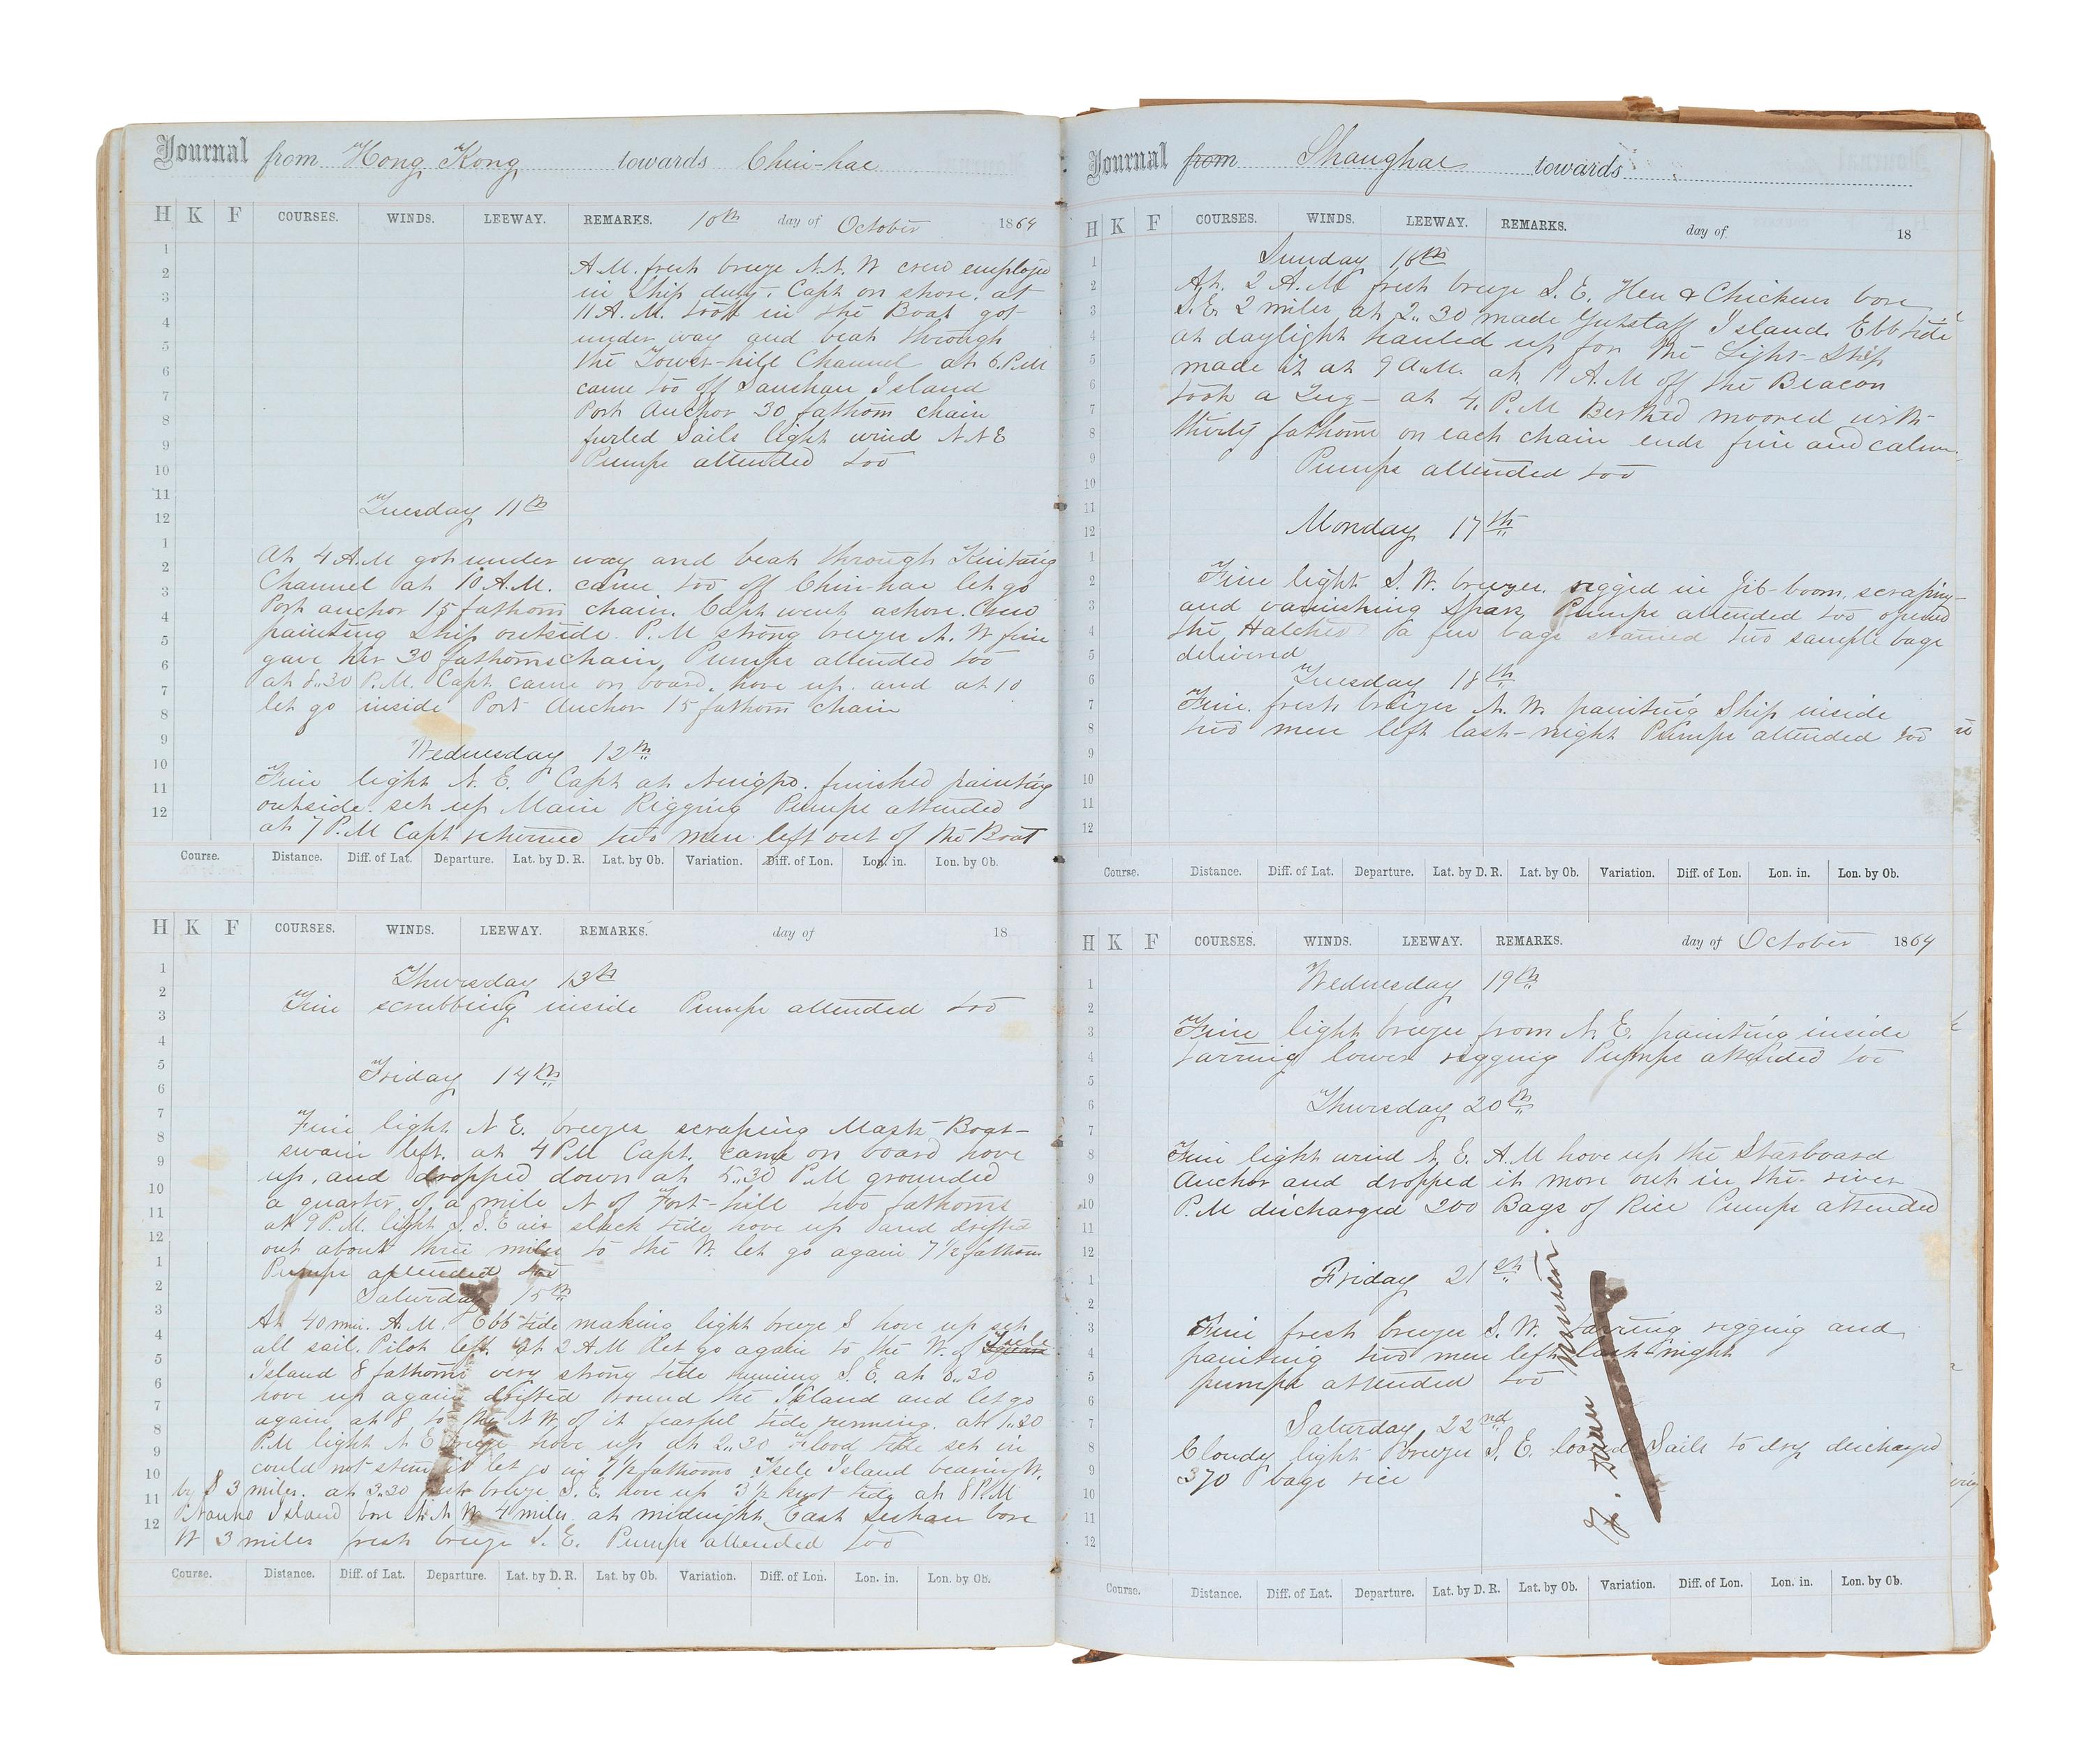 Journal from Hong Kong towards Chin-hae
H K F COURSES. WINDS. LEEWAY. REMARKS. 10th day of October 1864
A.M. fresh breeze N.N.W crew employed
in Ship duty. Capt on shore. at
11 A.M. took in the Boat got
under way and beat through
the Tower-hill Channel at 6.P.M
came too off Sanchau Island
Port Anchor 30 fathom chain
furled Sails light wind N N E
Pumps attended too
Tuesday 11th
At 4 A.M got under way and beat through Kintang
Channel at 10 A.M. came too off Chin-hae let go
Port anchor 15 fathom chain. Capt went ashore. Crew
painting Ship outside. P.M strong breeze N. W fine
gave her 30 fathoms chain, Pumps attended too
at 8.30 P.M. Capt came on board. hove up. and at 10
let go inside Port Anchor 15 fathom chain
Wednesday 12th
Fine light N. E. Capt at Ningpo. finished painting
outside. set up Main Rigging Pumps attended
at 7 P.M Capt returned two men left out of the Boat
Course. Distance. Diff. of Lat. Departure. Lat. by D. R. Lat. by Ob. Variation. Diff. of Lon. Lon. in. Lon. by Ob.
H K F COURSES. WINDS. LEEWAY. REMARKS. day of 18
Thursday 13th
Fine scrubbing inside Pumps attended too
Friday 14th
Fine light N E. breezes scraping Masts Boat-
swain left. at 4 P.M Capt. came on board hove
up, and dropped down at 5.30 P.M grounded
a quarter of a mile N of Fort-hill two fathoms
at 9 P.M. light S. S. E air slack tide hove up and drifted
out about three miles to the W. let go again 7 1/2 fathom
Pumps attended too
Saturday 15th
At 40 min. A.M. Ebb tide making light breeze S hove up set
all sail. Pilot left. at 2 A M let go again to the W. of Isele
Island 8 fathoms very strong tide running S. E. at 6.30
hove up again drifted round the Island and let go
again at 8 to the N W. of it fearful tide running. at 1.20
P.M light N E breeze hove up at 2.30 Flood tide set in
could not stem it let go in 7 1/2 fathoms Isele Island bearing W.
by S 3 miles. at 3.30 fresh breeze S. E. hove up 3 1/2 knot tide at 8 P.M
Island bore N. N. W. 4 miles at midnight East bore
W 3 miles fresh breeze S. E. Pumps attended too
Course. Distance. Diff. of Lat. Departure. Lat. by D. R. Lat. by Ob. Variation. Diff. of Lon. Lon. in. Lon. by Ob.
Journal from Shanghae towards
H K F COURSES. WINDS. LEEWAY. REMARKS. day of 18
Sunday 16th
At. 2 A.M fresh breeze S. E. Hen & Chickens bore
S.E. 2 miles at 2.30 made Gutzlaff Island. Ebb tide
at daylight hauled up for the Light-Ship
made it at 9 A.M. at 11 A.M off the Beacon
took a Tug- at 4. P.M Berthed moored with
thirty fathoms on each chain ends fine and calm
Pumps attended too
Monday 17th
Fine light S. W. breezes. rigged in Jib-boom, scraping
and varnishing Spars Pumps attended too opened
the Hatches a few bags stained two sample bags
delivered
Tuesday 18th
Fine. fresh breezes N. W. painting Ship inside
two men left last-night Pumps attended too
Course. Distance. Diff. of Lat. Departure. Lat. by D. R. Lat. by Ob. Variation. Diff. of Lon. Lon. in. Lon. by Ob.
H K F COURSES. WINDS. LEEWAY. REMARKS. day of October 1864
Wednesday 19th
Fine light breezes from N. E. painting inside
tarring lower rigging Pumps attended too
Thursday 20th
Fine light wind N. E. A.M hove up the Starboard
Anchor and dropped it more out in the river
P.M discharged 200 Bags of Rice Pumps attended
Friday 21st
Fine fresh breezes S. W. tarring rigging and
painting two men left last-night
pumps attended too
Saturday 22nd
Cloudy light breezes S. E. loosed Sails to dry discharged
370 bags rice
Course. Distance. Diff. of Lat. Departure. Lat. by D. R. Lat. by Ob. Variation. Diff. of Lon. Lon. in. Lon. by Ob.